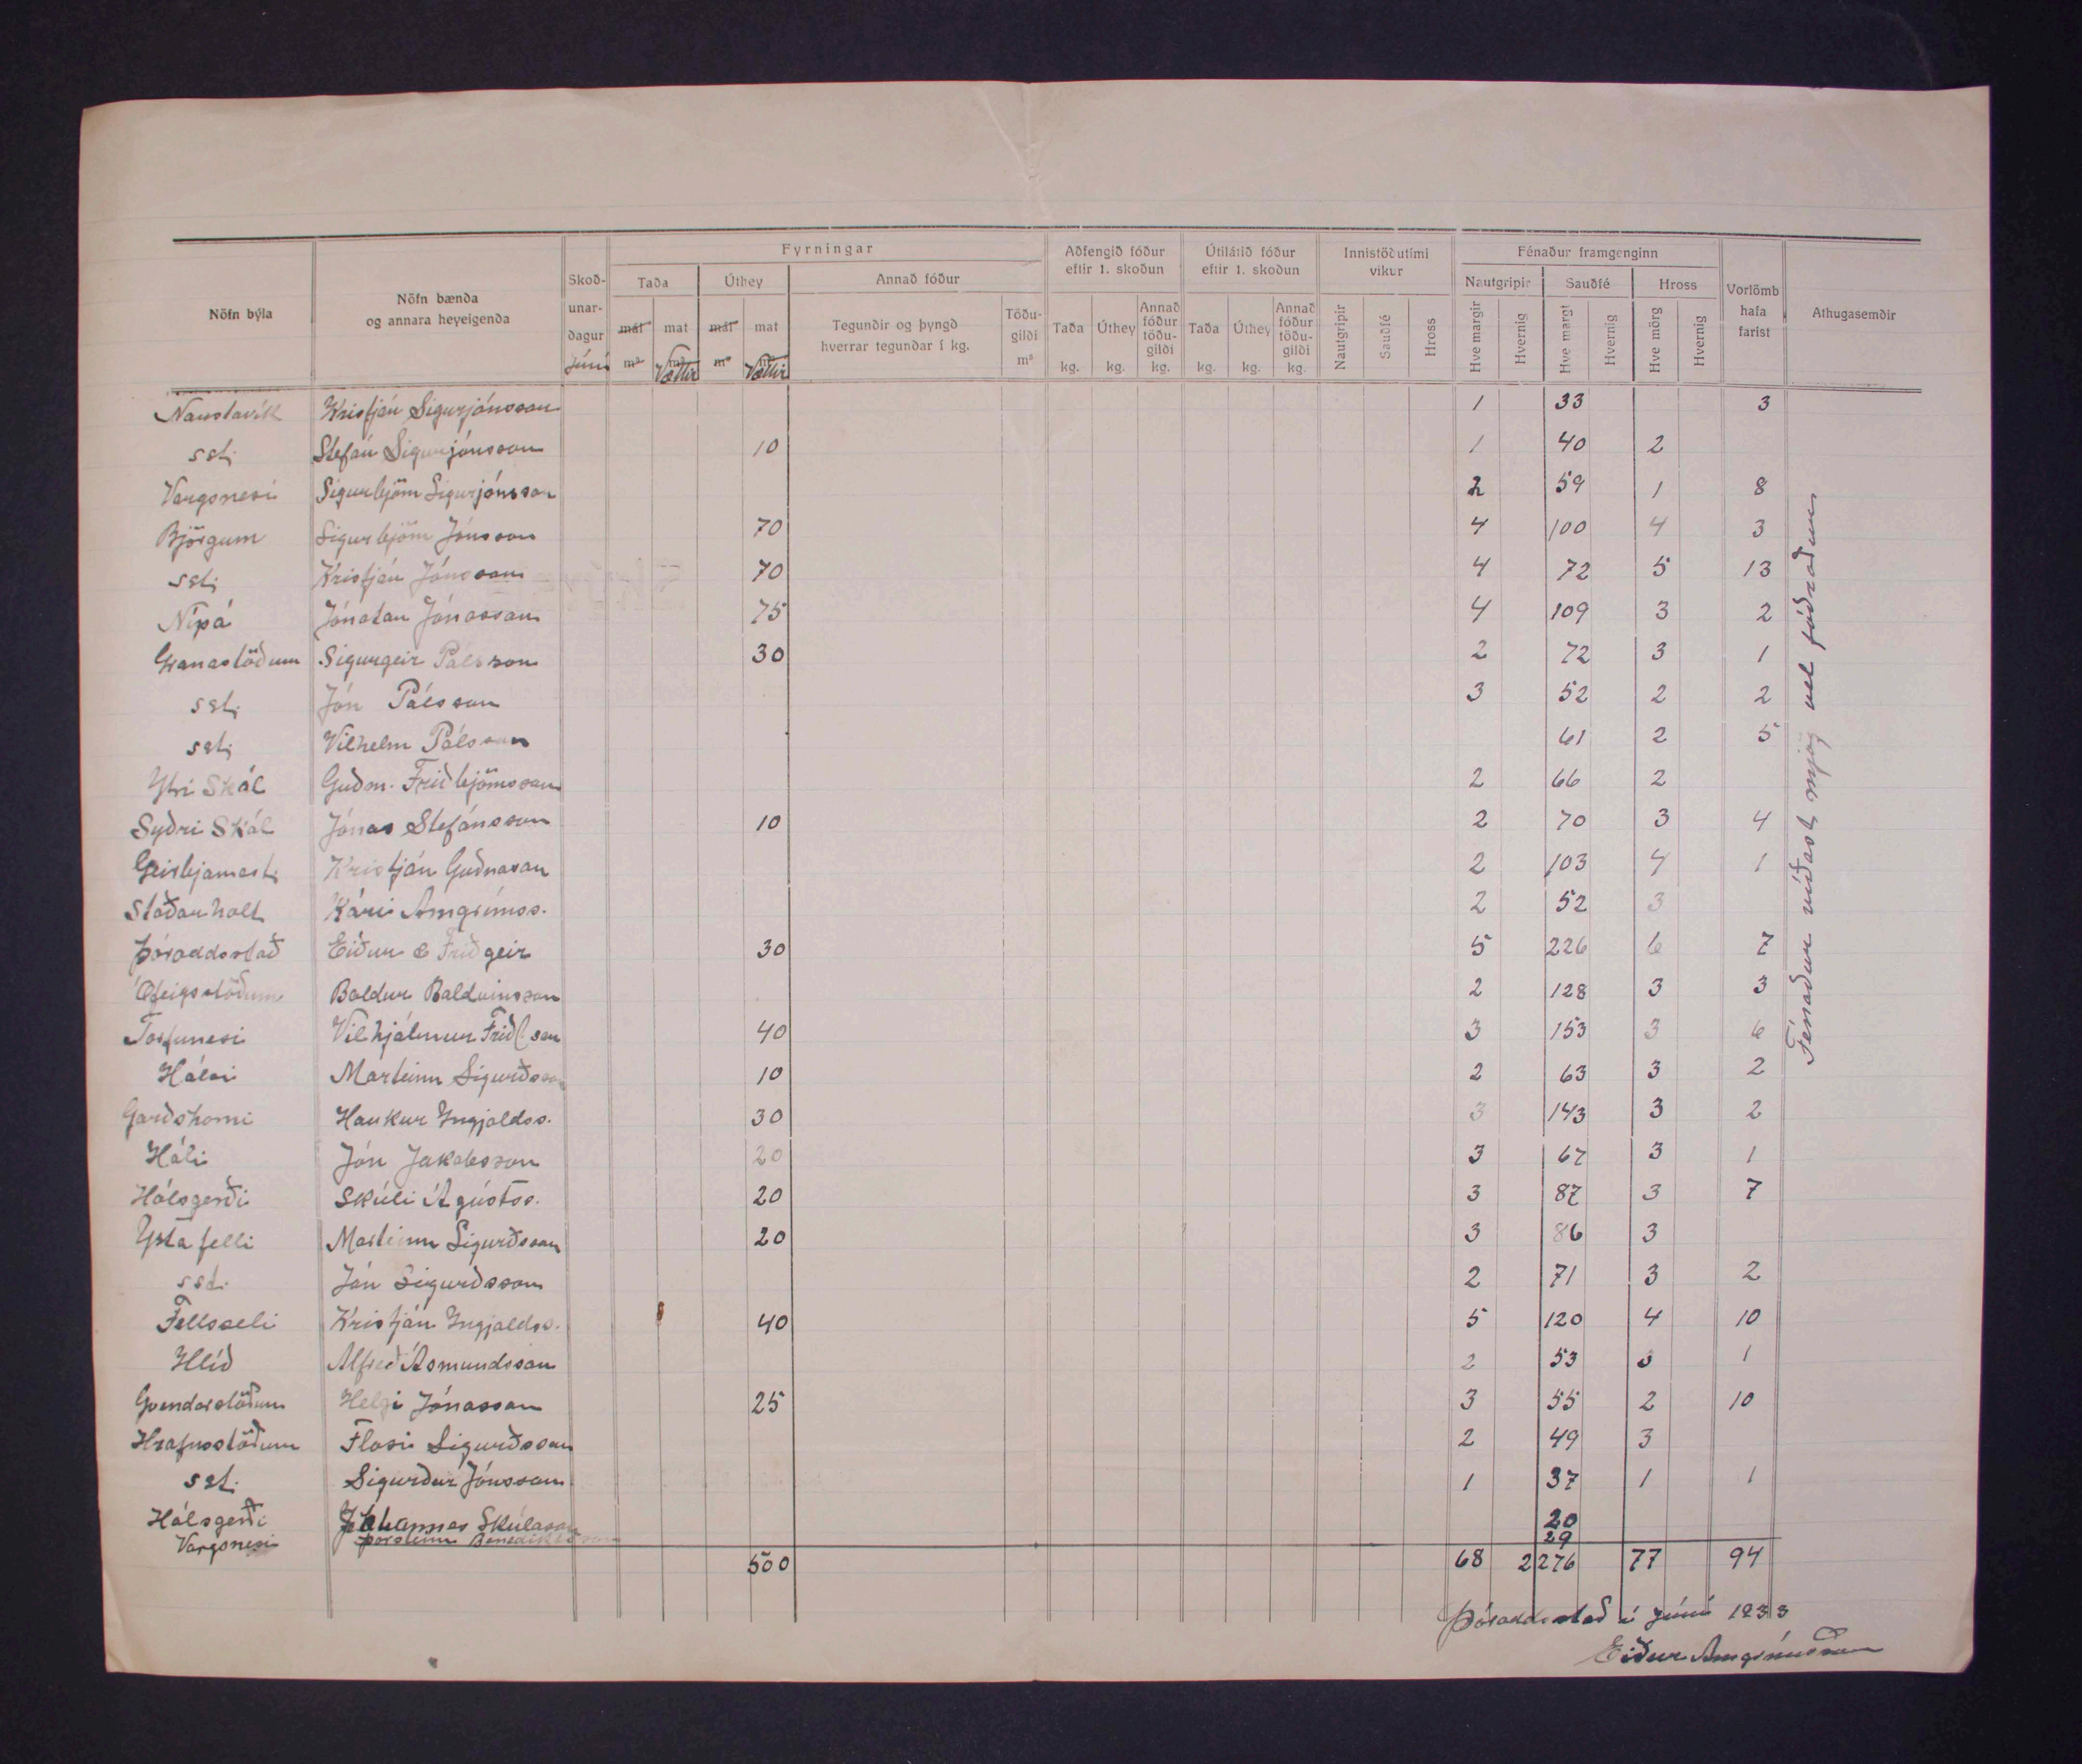 Fyrningar
Aðfengið fóður eftir 1. skoðun
Útilátið fóður eftir 1. skoðun
Innistöðutími vikur
Fénaður framgenginn
Nöfn býla
Nöfn bænda og annara heyeigenda
Skoð-unar-dagur Júní
Taða
Úthey
Annað fóður
Nautgripir
Sauðfé
Hross
Vorlömb hafa farist
Athugasemdir
mál m³ mat Vættir mál m³ mat Vættir
Tegundir og þyngd hverrar tegundar í kg.
Töðu-gildi m³
Taða kg. Úthey kg. Annað fóður töðu-gildi kg.
Taða kg. Úthey kg. Annað fóður töðu-gildi kg.
Nautgripir Sauðfé Hross
Hve margir Hvernig Hve margt Hvernig Hve mörg Hvernig
Naustavík Kristján Sigurjónsson 1 33 3
sst. Stefán Sigurjónsson 10 1 40 2
Vargsnesi Sigurbjörn Sigurjónsson 2 59 1 8
Björgum Sigurbjörn Jónsson 70 4 100 4 3
sst. Kristján Jónsson 70 4 72 5 13
Nípá Jónatan Jónasson 75 4 109 3 2
Granastöðum Sigurgeir Pálsson 30 2 72 3 1
sst. Jón Pálsson 3 52 2 2
sst. Vilhelm Pálsson 61 2 5
Ytri Skál Guðm. Friðbjörnsson 2 66 2
Syðri Skál Jónas Stefánsson 10 2 70 3 4
Geirbjarnarst. Kristján Guðnason 2 103 4 1
Staðarholt Kári Arngrímss. 2 52 3
Þóroddsstað Eiður & Friðgeir 30 5 226 6 7
Ófeigsstöðum Baldur Baldvinsson 2 128 3 3
Torfunesi Vilhjálmur Friðl son 40 3 153 3 6
Hálsi Marteinn Sigurðsson 10 2 63 3 2
Garðshorni Haukur Ingjaldss. 30 3 143 3 2
Háli Jón Jakobsson 20 3 67 3 1
Hálsgerði Skúli Ágústss. 20 3 87 3 7
Ystafelli Marteinn Sigurðsson 20 3 86 3
sst. Jón Sigurðsson 2 71 3 2
Fellsseli Kristján Ingjaldss. 40 5 120 4 10
Hlíð Alfreð Ásmundsson 2 53 3 1
Gvendarstöðum Helgi Jónasson 25 3 55 2 10
Hrafnsstöðum Flosi Sigurðsson 2 49 3
sst. Sigurður Jónsson 1 37 1 1
Hálsgerði Jóhannes Skúlason 20
Vargsnesi Þorsteinn Benediktsson 29
500 68 2276 77 94
Fénaður víðast mjög vel fóðraður
Þóroddsstað í júní 1933
Eiður Arngrímsson